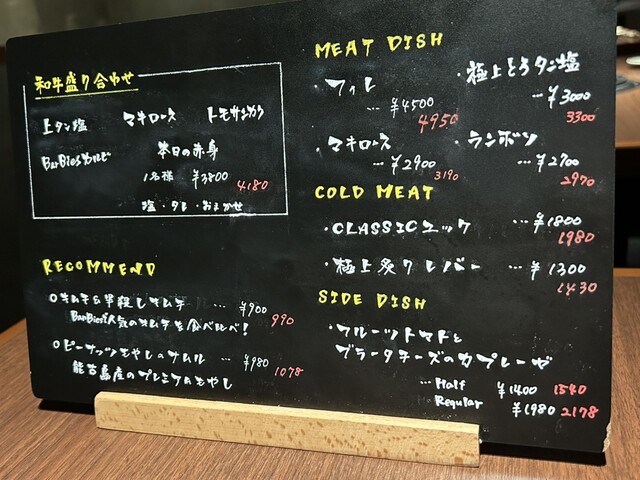 和牛盛り合わせ
上タン塩 マキロース トモサンカク
BarBies カルビ 本日の赤身
1名様 ¥3800 4180
塩・タレ・おまかせ
RECOMMEND
○キムチ&半殺しキムチ … ¥900 990
BarBies人気のキムチを食べ比べ!
○ピーナッツもやしのナムル … ¥980 1078
能古島産のプレミアムもやし
MEAT DISH
・フィレ
… ¥4500
4950
・極上とろタン塩
… ¥3000
3300
・マキロース
… ¥2900
3190
・ランボソ
… ¥2700
2970
COLD MEAT
・CLASSICユッケ … ¥1800
1980
・極上炙りレバー … ¥1300
1430
SIDE DISH
・フルーツトマトと
ブラータチーズのカプレーゼ
… Half ¥1400 1540
Regular ¥1980 2178